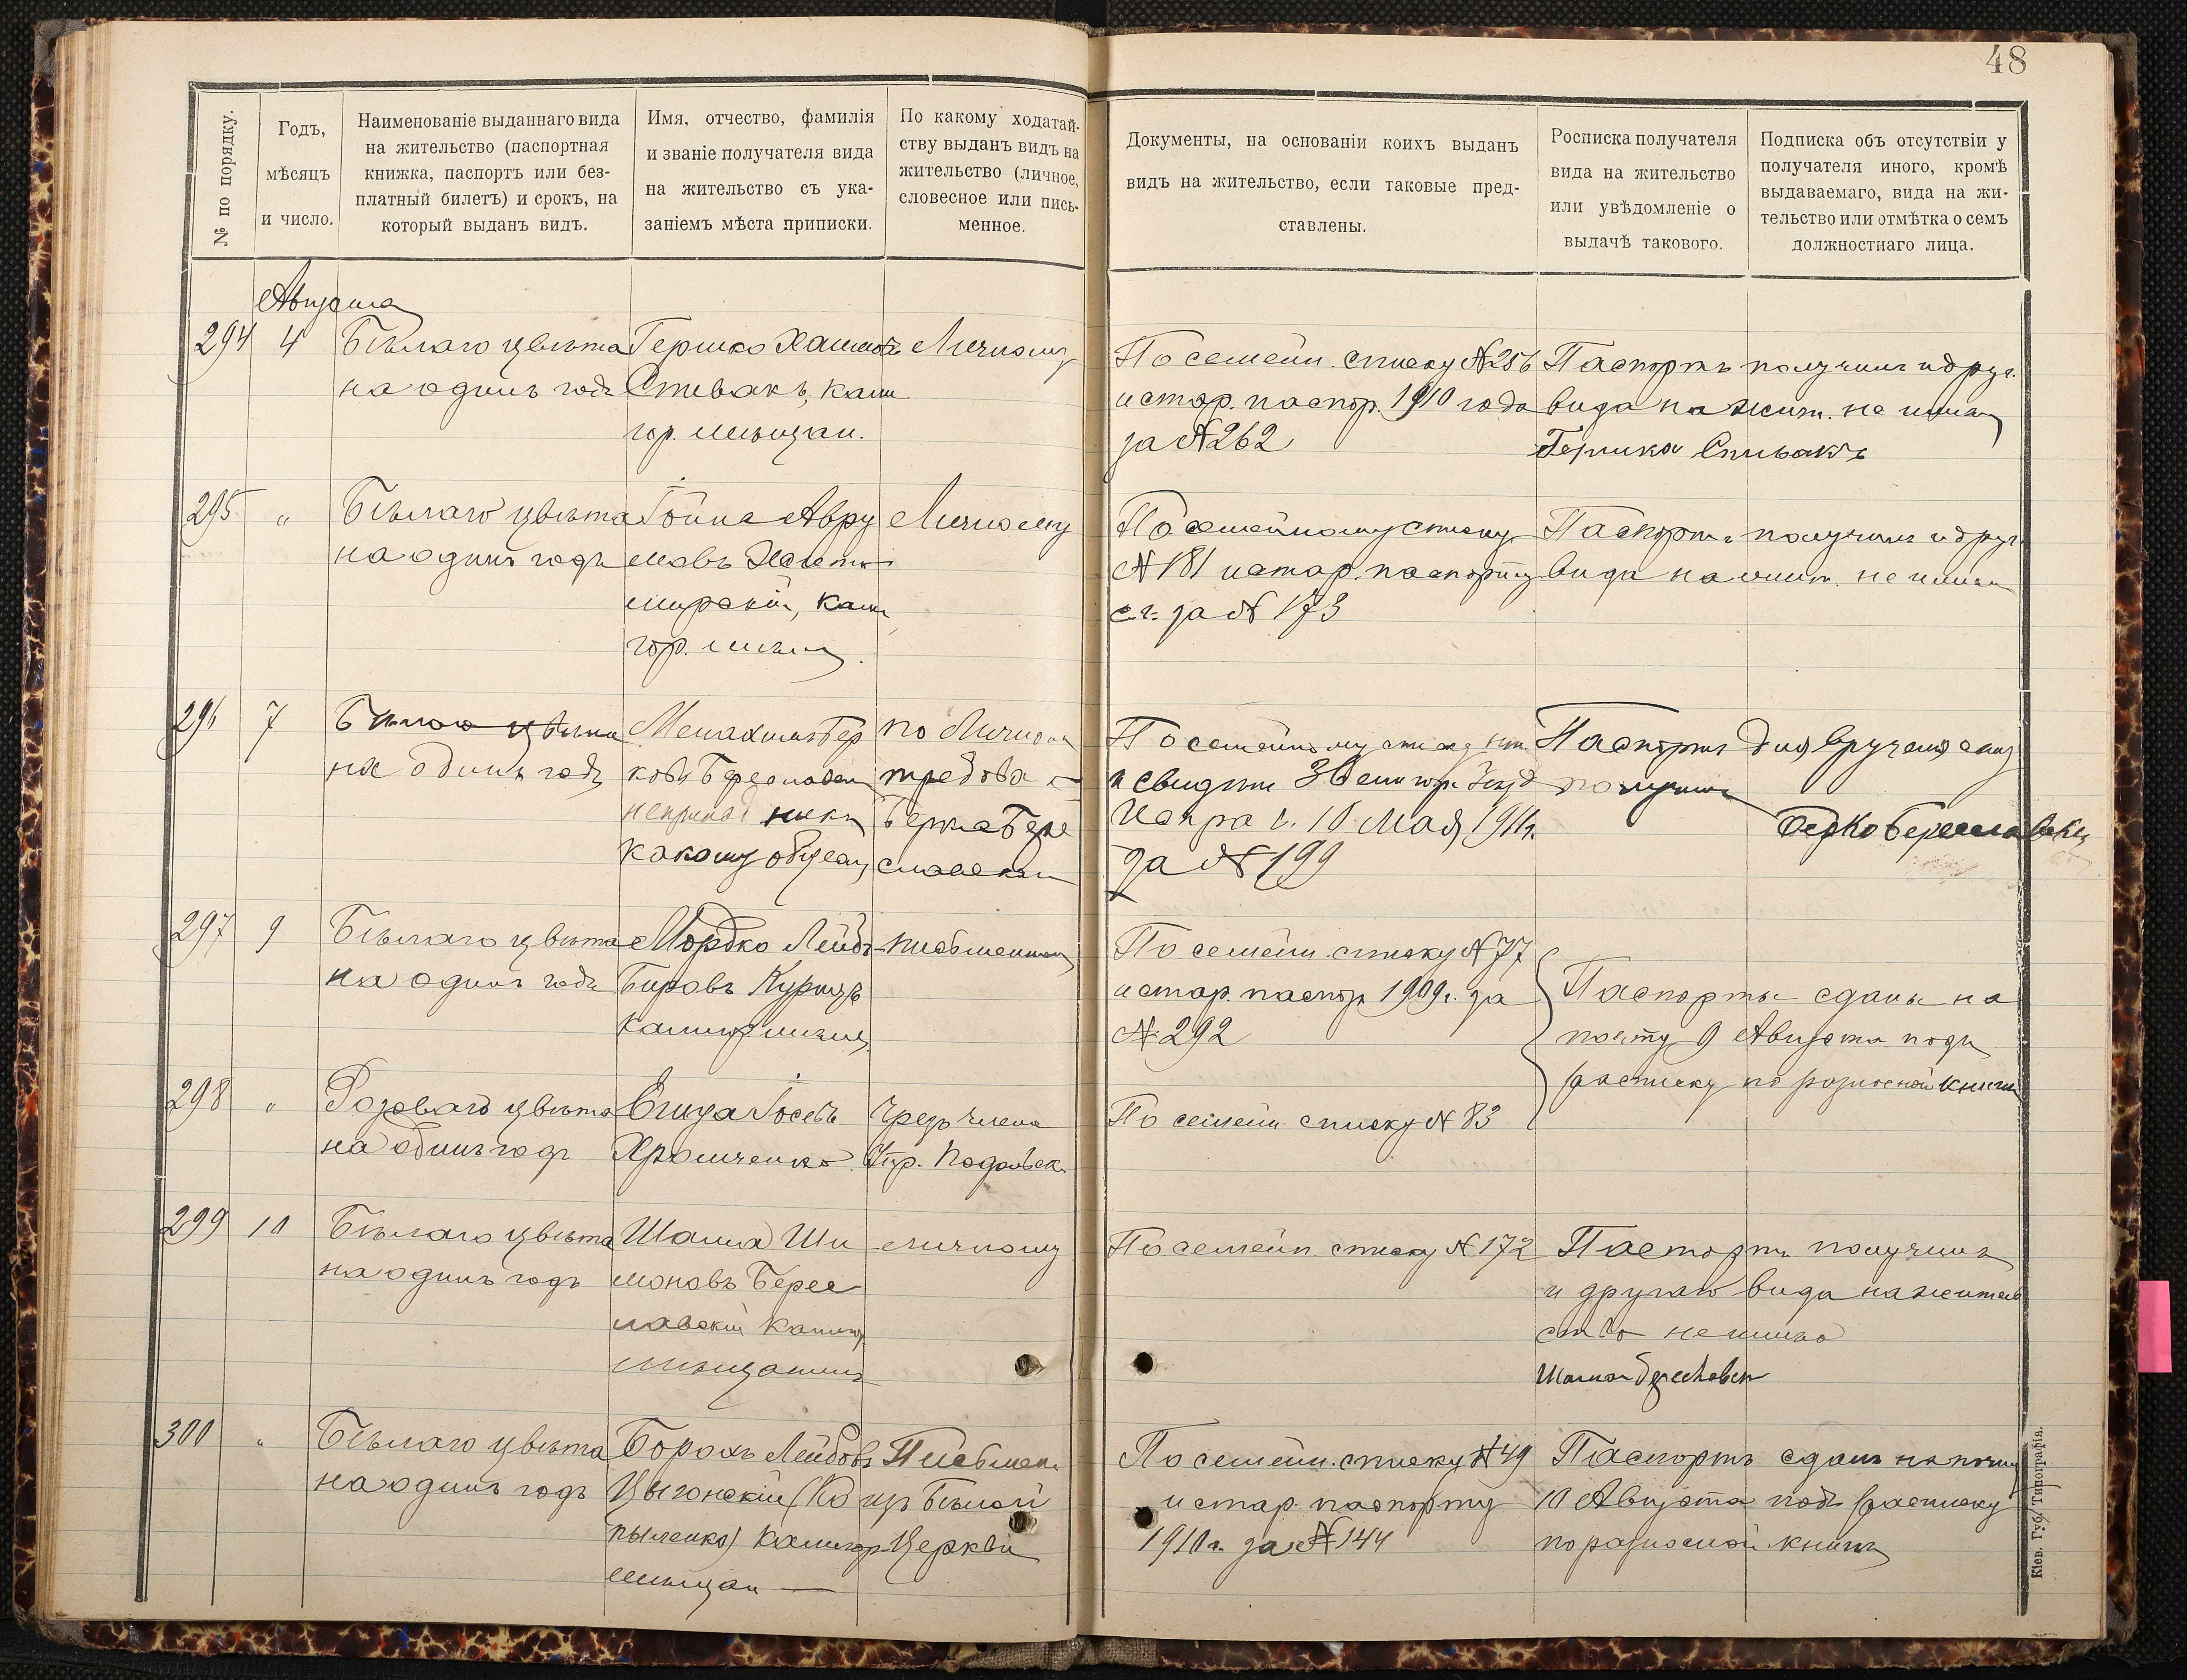 48
№ по порядку.
Годъ,
мѣсяцъ
и число.
Наименованіе выданнаго вида
на жительство (паспортная
книжка, паспортъ или без-
платный билетъ) и срокъ, на
который выданъ видъ.
Имя, отчество, фамилія
и званіе получателя вида
на жительство съ ука-
заніемъ мѣста приписки.
По какому ходатай-
ству выданъ видъ на
жительство (личное,
словесное или пись-
менное.
Документы, на основаніи коихъ выданъ
видъ на жительство, если таковые пред-
ставлены.
Росписка получателя
вида на жительство
или увѣдомленіе о
выдачѣ такового.
Подписка объ отсутствіи у
получателя иного, кромѣ
выдаваемаго, вида на жи-
тельство или отмѣтка о семъ
должностнаго лица.
Августа
294 4
Бѣлаго цвѣта
на одинъ годъ
Гершко
Спивакъ, Калн
гор. мѣщан.
Личному
По семейн. списку №256
и стар. паспор. 1910 года
за №262
Паспортъ получилъ и друг.
вида на жит. не имѣю
Гершко Спивакъ
295 „
Бѣлаго цвѣта
на одинъ годъ
Авру
мовъ
мирскій, Калн
гор.
Личному
По семейному списку
№ 181 и стар. паспорту
с.г. за № 173
Паспортъ получилъ и друг.
вида на жит. не имѣю
296 7
Бѣлого цвѣта
на одинъ годъ
Менахимъ Бер
ковъ Береславск
какому обществ
по Личном
требова
Берка Бере
славскаго
По семейному списку
и свидѣт Звенигор. Уѣзд
Испра с. 10 Мая 1911г.
за № 199
Паспортъ для вручения сыну
получилъ
Берко Береславски
297 9
Бѣлаго цвѣта
на одинъ годъ
Мордко Лейб
Калнигор мѣщан
письменном
По семейн. списку № 77
и стар. паспор 1909г. за
№ 292
Паспорты сданы на
почту 9 Августа подъ
расписку по разносной книги
298 „
Розоваго цвѣта
на одинъ годъ
Іосевъ
Хромченко
Чрезъ члена
Упр. Подольск.
По семейн списку № 83
299 10
Бѣлаго цвѣта
на одинъ годъ
Шаша Ши
моновъ Берес
лавскій Калниг
мѣщанинъ
личному
По семейн. списку № 172
Паспортъ получилъ
и другаго вида на житель
ство не имѣю
300 „
Бѣлаго цвѣта
на одинъ годъ
Борохъ Лейбовъ
Цыганскій (Ко
пыченко) Калнигор
мѣщан —
Письмен.
изъ Бѣлой
Церкви
По семейн. списку № 49
и стар. паспорту
1910г. за № 144
Паспортъ сданъ на почту
10 Августа подъ расписку
по разносной книгѣ
Кіев. Губ. Типографія.